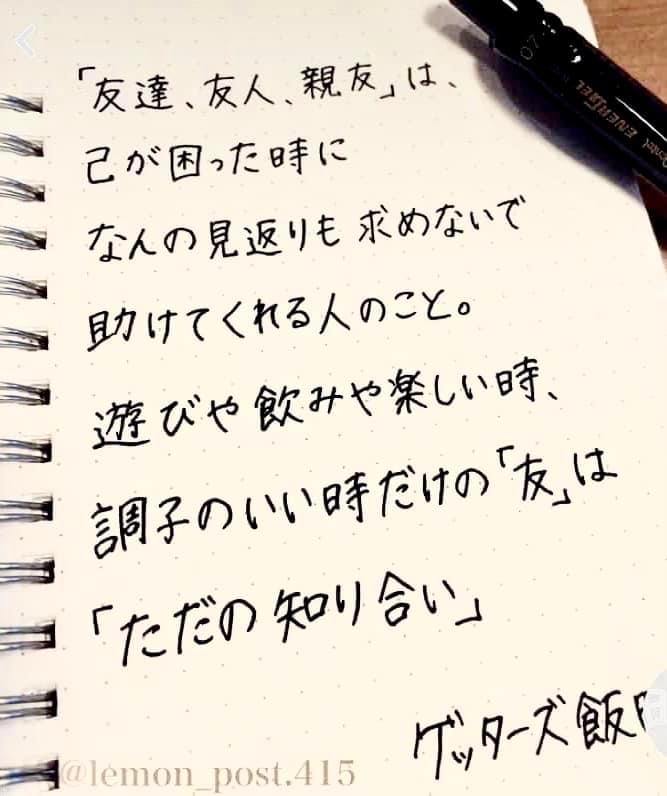 「友達、友人、親友」は、
己が困った時に
なんの見返りも求めないで
助けてくれる人のこと。
遊びや飲みや楽しい時、
調子のいい時だけの「友」は
「ただの知り合い」
ゲッターズ飯
@lemon_post.415
07
Pentel ENERGEL